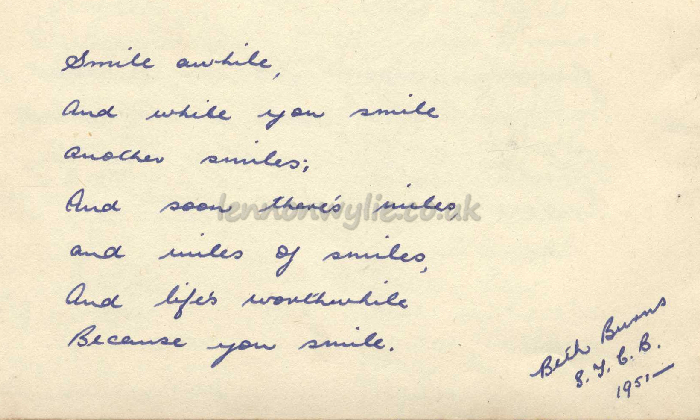 Smile awhile,
And while you smile
another smiles;
And soon there's miles
and miles of smiles,
And life's worthwhile
Because you smile.
Beth Burns
S.T.C.B.
1951—
lennonwylie.co.uk